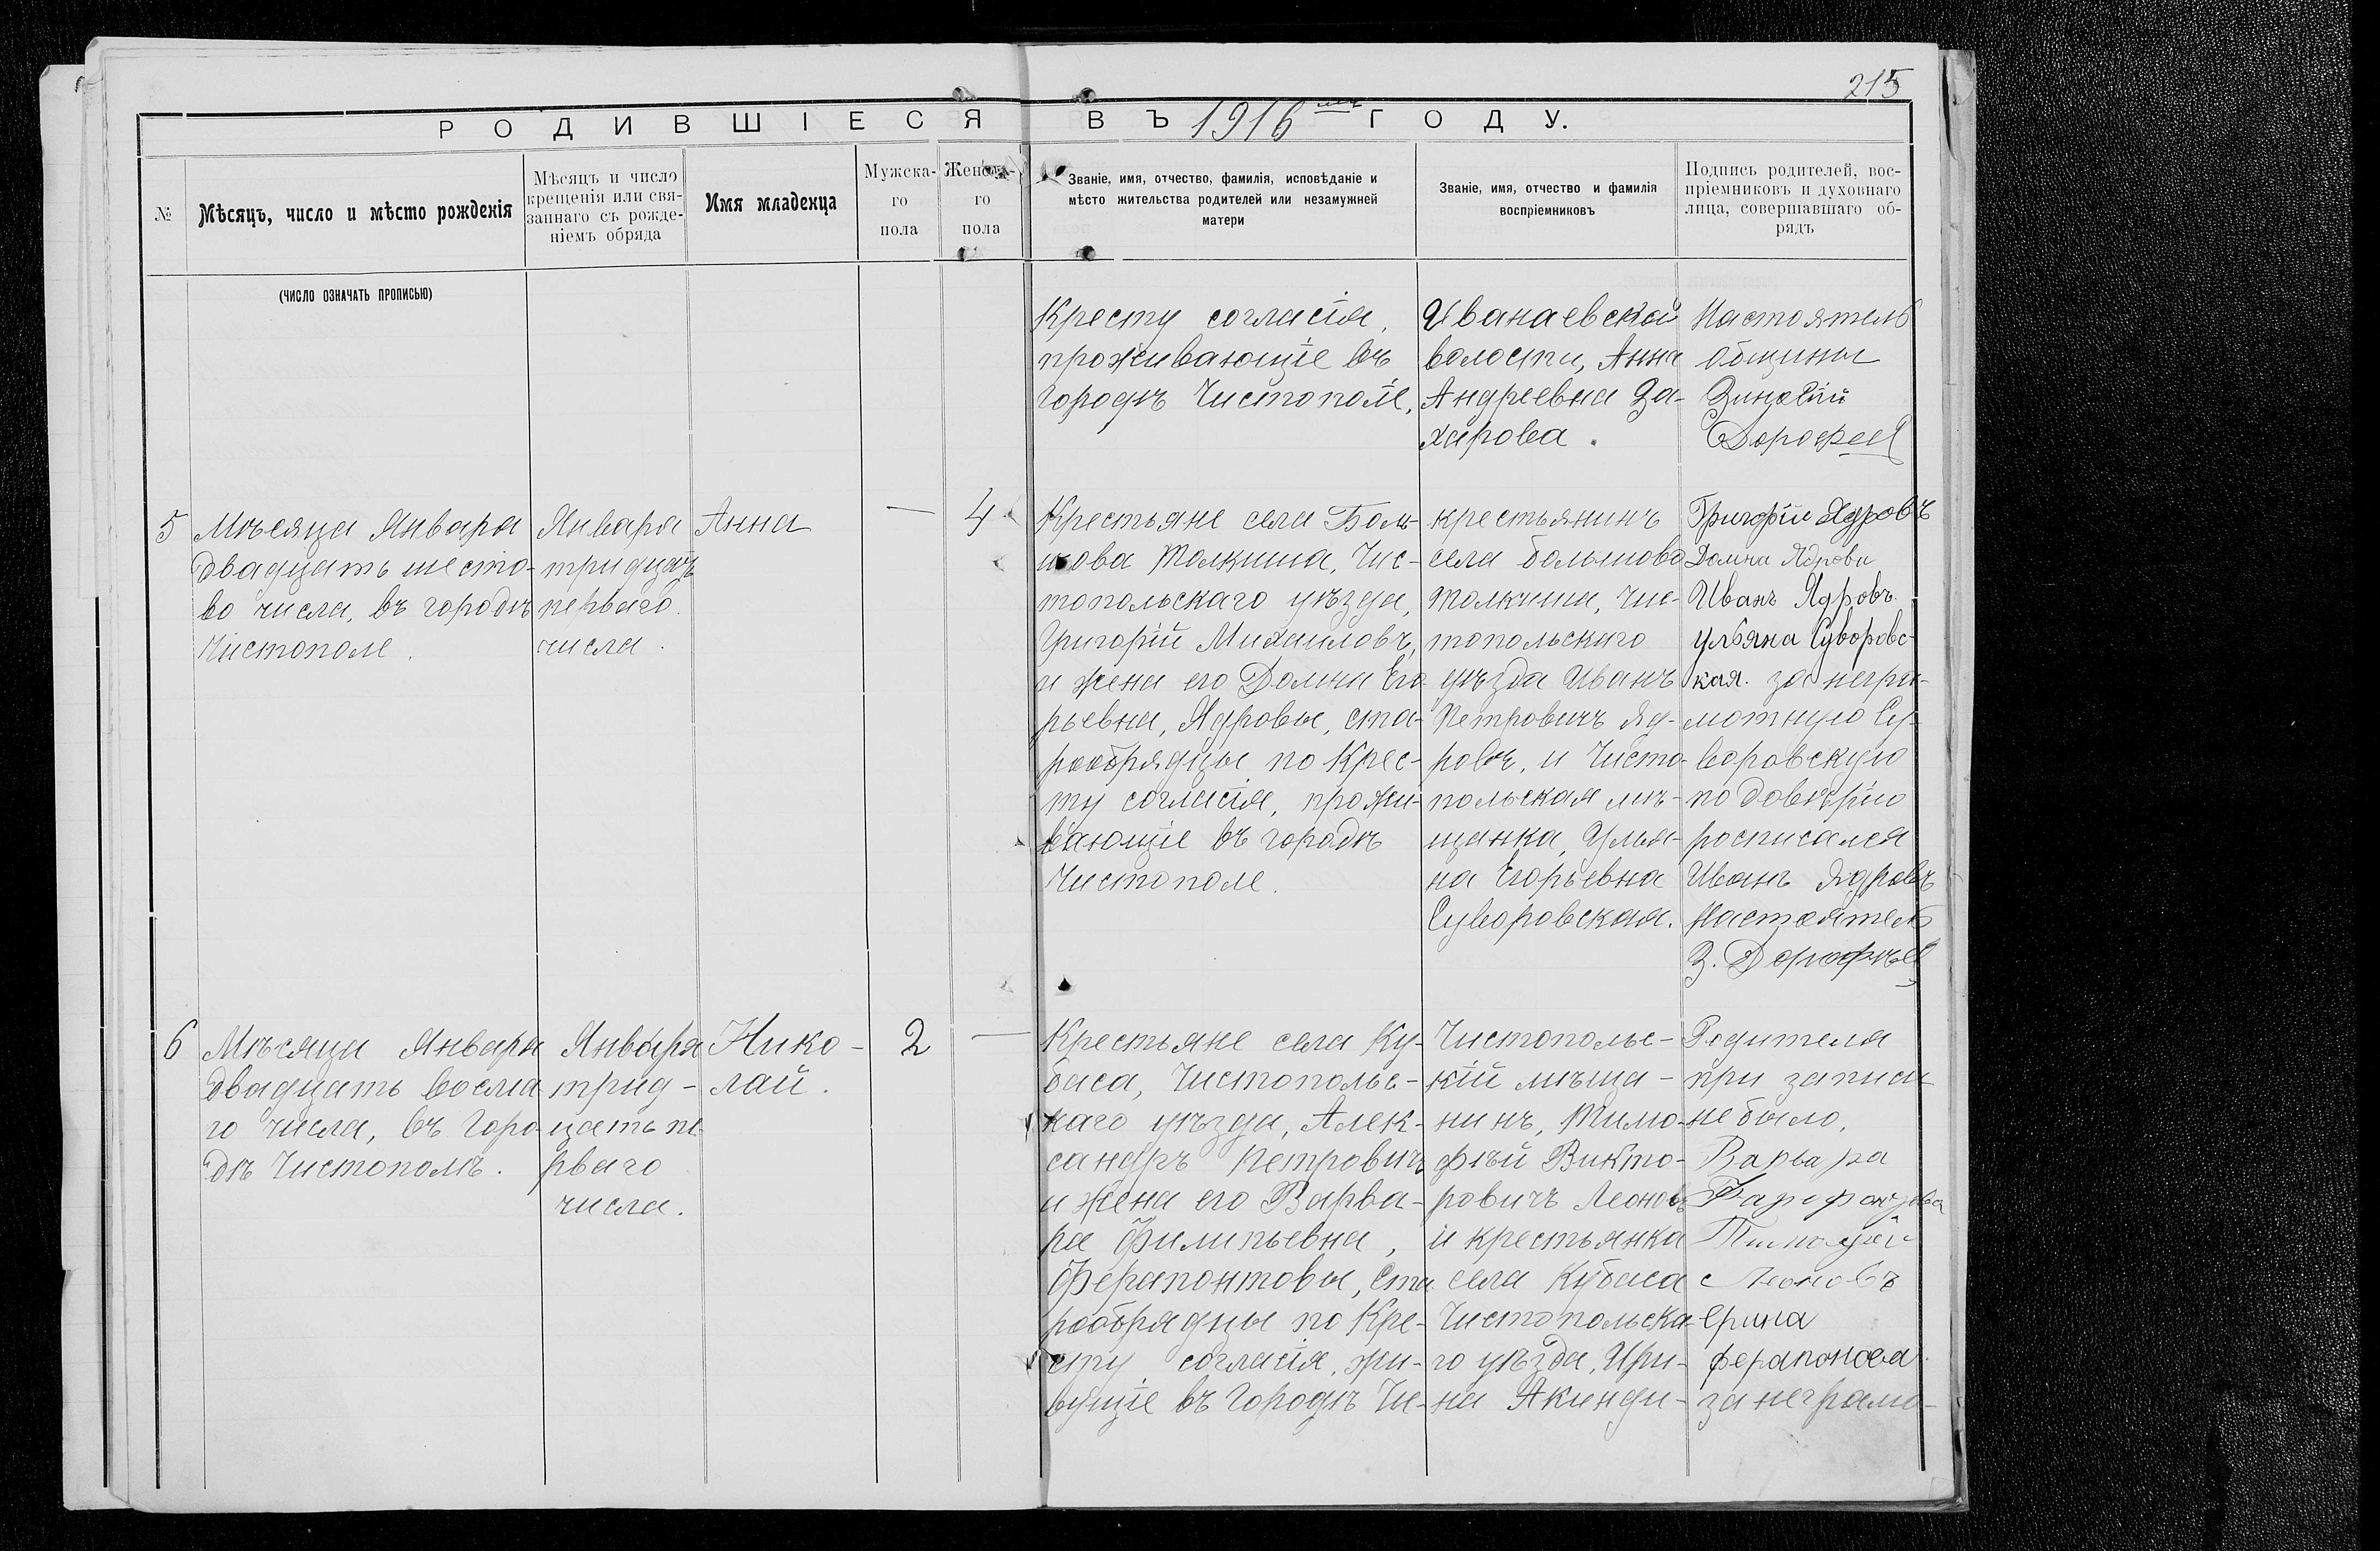 215
РОДИВШІЕСЯ ВЪ 1916мъ ГОДУ.
№
Мѣсяцъ, число и мѣсто рожденія
Мѣсяцъ и число
крещенія или свя-
заннаго съ рожде-
ніемъ обряда
Имя младенца
Мужска-
го
пола
Женска-
го
пола
Званіе, имя, отчество, фамилія, исповѣданіе и
мѣсто жительства родителей или незамужней
матери
Званіе, имя, отчество и фамилія
воспріемниковъ
Подпись родителей, вос-
пріемниковъ и духовнаго
лица, совершавшаго об-
рядъ
(ЧИСЛО ОЗНАЧАТЬ ПРОПИСЬЮ)
Кресту согласія,
проживающіе въ
городѣ Чистополе.
Иванаевской
волости, Анна
Андреевна За-
харова.
Настоятель
Общины
Зиновій
Дорофеев
5
Мѣсяца Января
двадцать шесто-
во числа, въ городѣ
Чистополе.
Января
тридцать
перваго
числа.
Анна
—
4
Крестьяне села Боль-
шова Толкиша, Чис-
топольскаго уѣзда,
Григорій Михаиловъ,
и жена его Домна Его-
рьевна, Ядровы, ста-
рообрядцы по Крес-
ту согласія, прожи-
вающіе въ городѣ
Чистополе.
крестьянинъ
села большова
Толкиша, Чис-
топольскаго
уѣзда Иванъ
Петровичъ Яд-
ровъ, и Чисто-
польская мѣ-
щанка, Улья-
на Егорьевна
Суворовская.
Григорій Ядровъ
Домна Ядрова
Иванъ Ядровъ.
ульяна Суворовс-
кая. за негра-
мотную Су-
воровскую
по довѣрію
росписался
Иванъ Ядровъ
Настоятель
З. Дорофѣев
6
Мѣсяца Января
двадцать восма
го числа, въ Горо-
дѣ Чистополѣ.
Января
трид-
цать пе
рваго
числа.
Нико-
лай.
2
—
Крестьяне села Ку-
баса, Чистопольс-
каго уѣзда, Алек-
сандръ Петровичъ
и жена его Варва-
ра Филипьевна,
Ферапонтовы, Ста
рообрядцы по Кре-
сту согласія, жи-
вущіе въ Городѣ Чи-
Чистопольс-
кій мѣща-
нинъ, Тимо-
фѣй Викто-
ровичъ Леоновъ
и крестьянка
села Кубаса
Чистопольска-
го уѣзда, Ири-
на Акинди-
Родителя
при записи
не было,
Варвара
Тимофѣй
Леоновъ
Ерина
ферапонова
за неграмо-